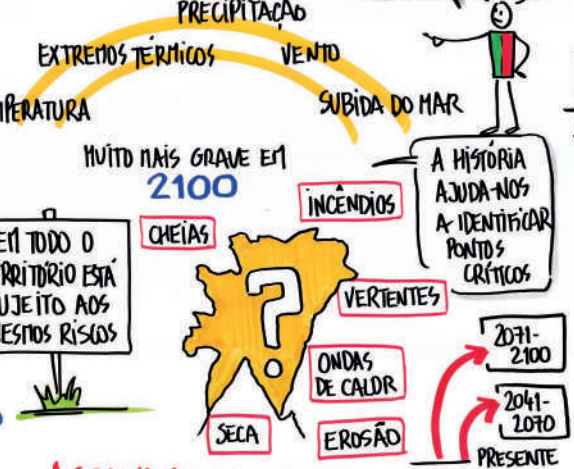 PRECIPITAÇÃO
EXTREMOS TÉRMICOS
VENTO
SUBIDA DO MAR
MUITO MAIS GRAVE EM
2100
A HISTÓRIA
AJUDA-NOS
A IDENTIFICAR
PONTOS
CRÍTICOS
INCÊNDIOS
CHEIAS
EM TODO O
RRITÓRIO ESTÁ
UJEITO AOS
ESMOS RISCOS
?
VERTENTES
ONDAS
DE CALOR
SECA
EROSÃO
2071-
2100
2041-
2070
PRESENTE